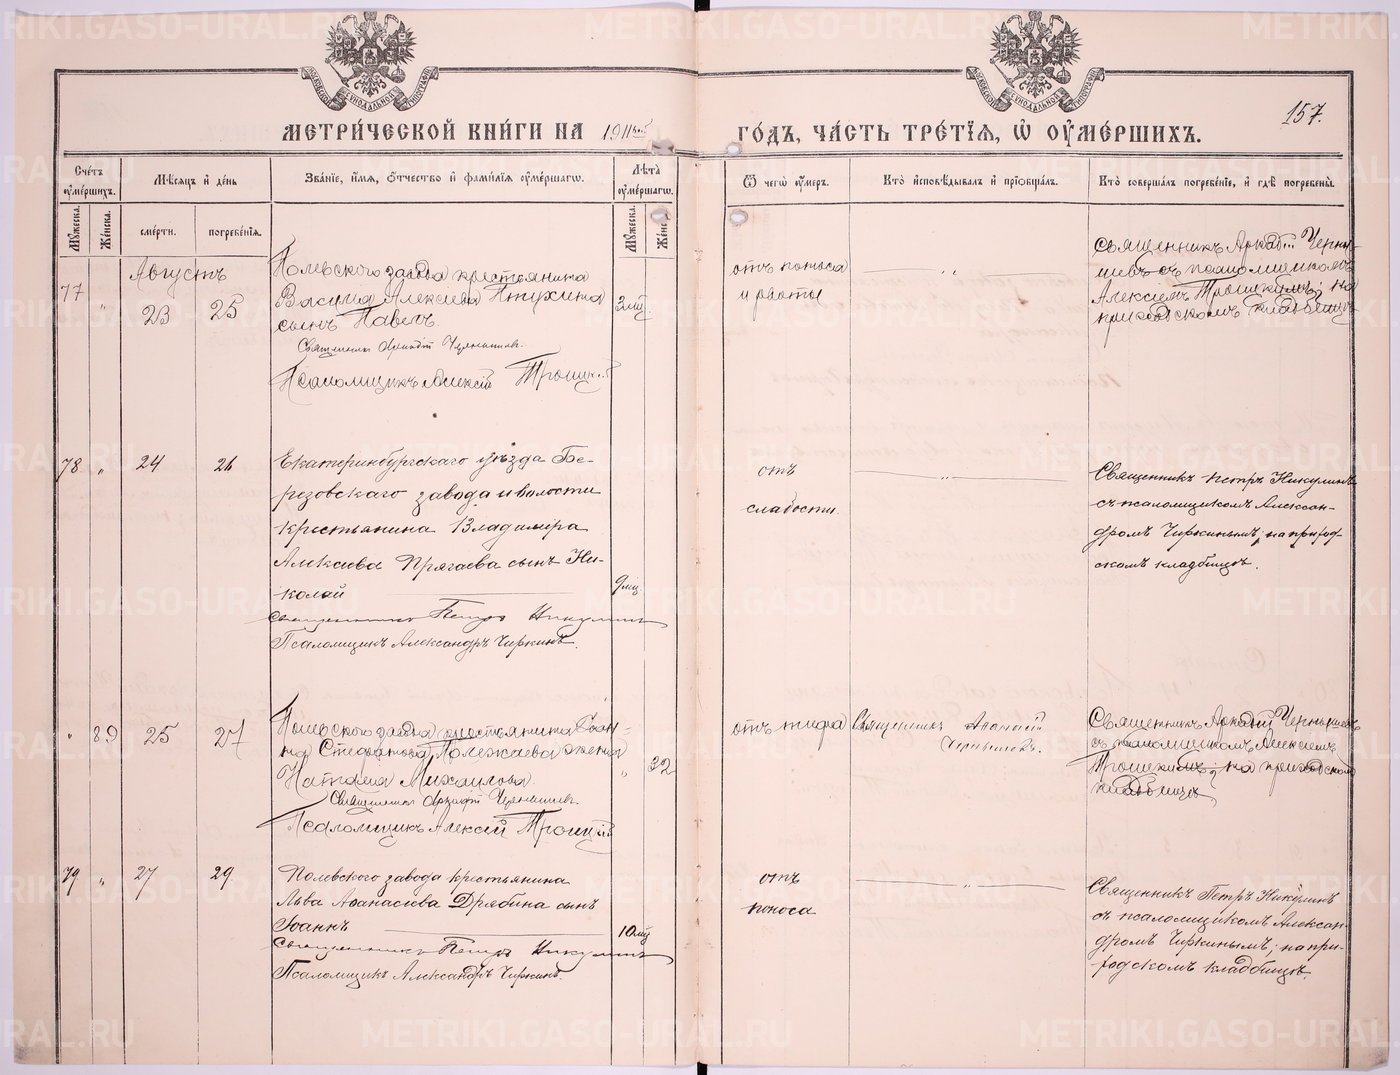 METRIKI.GASO-URAL.RU
МЕТРИ́ЧЕСКОЙ КНИ́ГИ НА 1911 год
ГО́ДЪ, ЧА́СТЬ ТРЕ́ТЇѦ, Ѡ҆ ОУ҆МЕ́РШИХЪ.
157.
Сче́тъ оу҆ме́ршихъ.
Мꙋ́жеска.
Же́нска.
Мѣ́сѧцъ и҆ де́нь
сме́рти.
погребе́нїѧ.
Зва́нїе, и҆́мѧ, ѻ҆́тчество и҆ фами́лїѧ оу҆ме́ршагѡ.
Лѣ́та оу҆ме́ршагѡ.
Мꙋ́жеска.
Же́нс
Ѿ чегѡ̀ оу҆́меръ.
Кто̀ и҆сповѣ́дывалъ и҆ прїѡбща́лъ.
Кто̀ соверша́лъ погребе́нїе, и҆ гдѣ̀ погребены̀.
Августъ
77 " 23 25
Полевского завода крестьянина
Василия Алексеева Птухина
сынъ Павелъ.
Священникъ Аркадій Чернышевъ.
Псаломщикъ Алексій Троицкій
3 мѣс.
отъ поноса
и рвоты
"
Священникъ Аркадій Черны-
шевъ съ псаломщикомъ
Алексіемъ Троицкимъ; на
приходскомъ кладбищѣ
78 " 24 26
Екатеринбургскаго уѣзда Бе-
резовскаго завода и волости
крестьянина Владимира
Алексѣева Прягаева сынъ Ни-
колай
Священникъ Петръ Никулинъ
Псаломщикъ Александръ Чиркинъ.
9 мц.
отъ
слабости.
"
Священникъ Петръ Никулинъ
съ псаломщикомъ Алексан-
дромъ Чиркинымъ; на приход-
скомъ кладбищѣ.
" 89 25 27
Полевского завода крестьянина Іоан-
на Стефанова Полежаева жена
Наталия Михайлова.
Священникъ Аркадій Чернышевъ.
Псаломщикъ Алексій Троицкій
" 32
отъ тифа
Священникъ Аркадій
Чернышевъ.
Священникъ Аркадій Чернышевъ
съ псаломщикомъ Алексіемъ
Троицкимъ; на приходскомъ
кладбищѣ
79 " 27 29
Полевского завода крестьянина
Льва Аѳанасіева Дрябина сынъ
Іоаннъ
Священникъ Петръ Никулинъ
Псаломщикъ Александръ Чиркинъ
10 мц
отъ
поноса
"
Священникъ Петръ Никулинъ
съ псаломщикомъ Алексан-
дромъ Чиркинымъ; на при-
ходскомъ кладбищѣ.